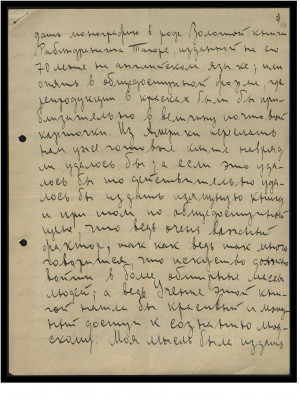 дать монографию в роде Золотой книги
Рабиндраната Тагора, изданной на его
70летие на английском языке; или
опять в общедоступной форме, где
репродукции в красках были бы при-
близительно в величину почтовой
карточки. Из Америки переслать
нам уже готовые книги навряд
ли удалось бы, а если это уда-
лось бы то действительно уда-
лось бы издать изящную книгу
и при том по общедоступной
цене, что ведь очень важный
фактор, так как ведь так много
говорится, что искусство должно
войти в более обширные массы
людей; а ведь Учение этой кни-
гой нашло бы красивый и мощ-
ный доступ к сознанию люд-
скому. Моя мысль была издать